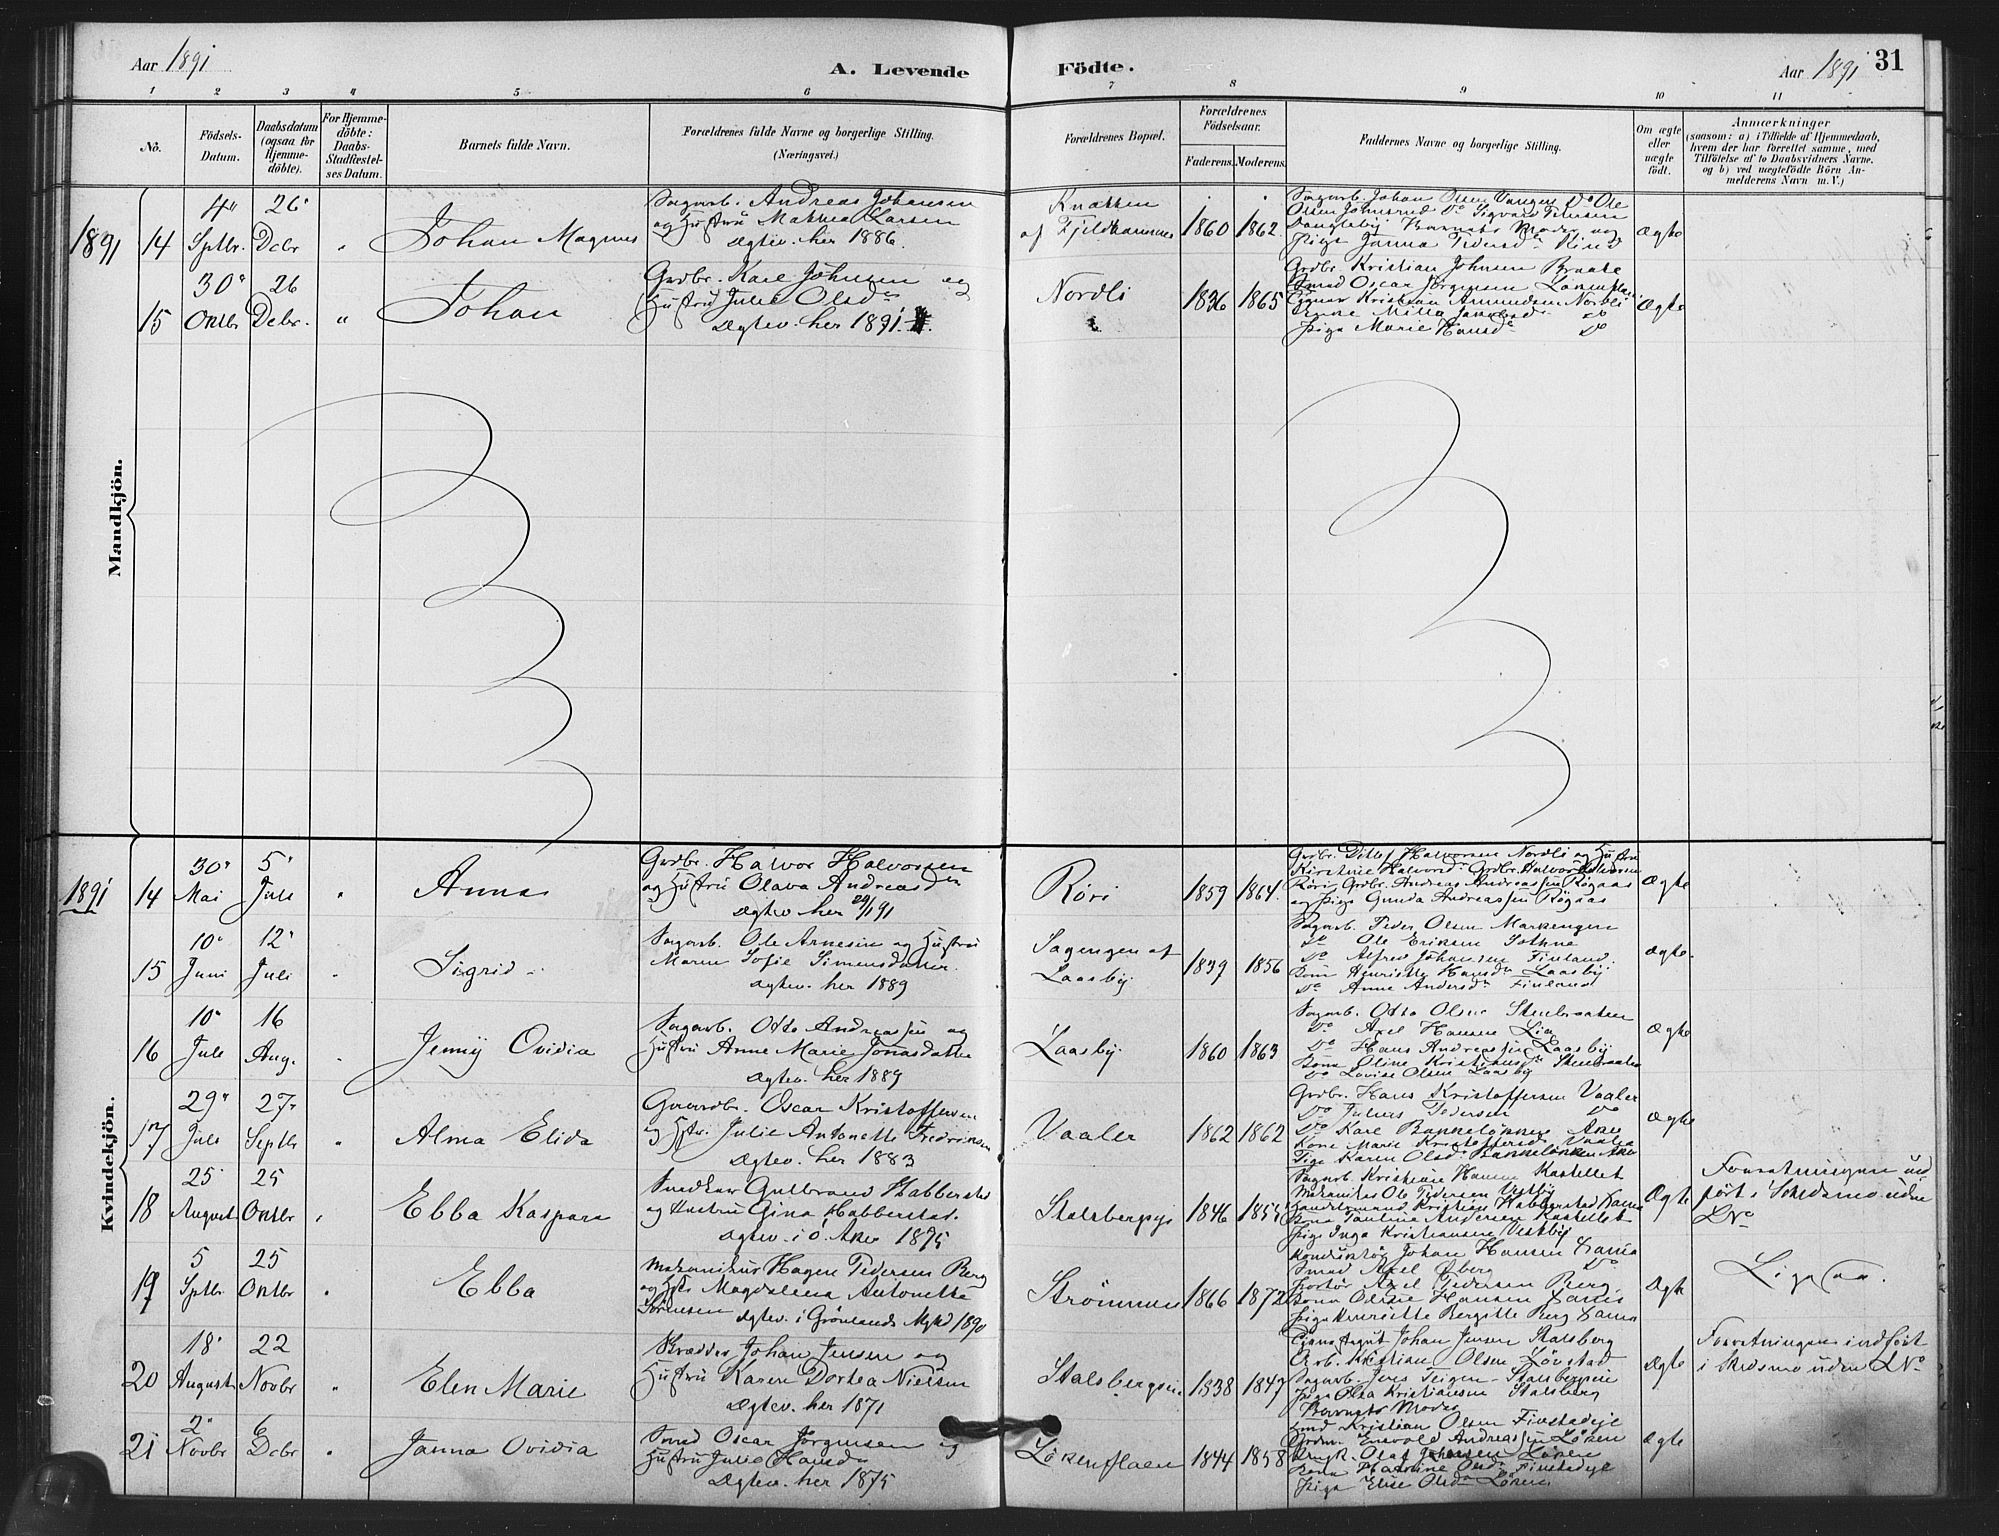 Aar 1891
A. Levende Födte.
Aar 1891 31
1 2 3 4 5 6 7 8 9 10 11
Nô.
Födsels-Datum.
Daabsdatum (ogsaa for Hjemme-döbte).
For Hjemme-döbte: Daabs-Stadfæstel-ses Datum.
Barnets fulde Navn.
Forældrenes fulde Navne og borgerlige Stilling.
(Næringsvei.)
Forældrenes Bopæl.
Forældrenes Födselsaar.
Faderens. Moderens.
Faddernes Navne og borgerlige Stilling.
Om ægte eller uægte födt.
Anmærkninger
(saasom: a) i Tilfælde af Hjemmedaab,
hvem der har forrettet samme, med
Tilföielse af to Daabsvidners Navne.
og b) ved uægtefödte Börn An-
melderens Navn m. V.)
Mandkjön.
1891 14 4 Sptbr. 26 Decbr " Johan Magnus
Sagarb. Andreas Johansen
og Hustru Mathea Larsen
Ægtev. her 1886.
Knatten af Fjeldhammer 1860 1862
Sagarb. Johan Olsen Vangen Do Ole
Barnets Moder og
Ægte
15 30 Oktbr 26 Decbr. " Johan
Grdbr. Karl Johnsen og
Hustru Julie Olsdr
Ægtev. her 1891.
Nordli 1836 1865
Grdbr. Kristian Johnsen Braate
Smed Oscar Jörgensen Lökenflaen
Kristian Amundsen Nordli
Enke Do
Pige Marie Hansdr Do
Ægte
Kvindekjön.
1891 14 30 Mai 5 Juli " Anna
Grdbr. Halvor Halvorsen
og Hustru Olava Andreasdr
Ægtev. her 29/1 91
Röri 1859 1864
Grdbr. Ditlef Halvorsen Nordli og Hustru
Kirstine Halvordr Grdbr. Halvor Halvorsen
Röri Grdbr. Andreas Andreassen Rögaas
og Pige Gunda Andreassen Rögaas
Ægte
15 10 Juni 12 Juli Sigrid
Sagarb. Ole Arnesen og Hustru
Maren Sofie Simensdatter.
Ægtev. her 1889
Sagengen af Laasby 1839 1856
Sagarb. Peder Olsen Markengen
Do Ole Eriksen Sothne
Do Alfred Johansen Finland.
Kone Henriette Hansdr Laasby
Do Anne Andersdr Finland
Ægte
16 10 Juli 16 Aug. Jenny Ovidia
Sagarb. Otto Andreassen og
Hustru Anne Marie Jonasdatter
Ægtev. her 1889
Laasby. 1860 1863
Sagarb. Otto Olsen Stenbraaten
Do Axel Hansen Lia
Do Hans Andreassen Laasby
Kone Oline Kristiansdr Stenbraaten
Do Lovise Olsen Laasby
Ægte
17 29 Juli 27 Septbr " Alma Elida
Gaardbr. Oscar Kristoffersen
og Hstr. Julie Antonette Fredriksen
Ægtev. her 1883
Vaaler 1862 1862
Grdbr. Hans Kristoffersen Vaaler
Do Julius Pedersen Do
Do Karl Bakkelökken Aker
Kone Marie Kristoffersdr Vaaler
Pige Karen Olsdr Bakkelökken Aker
Ægte
18 25 August 25 Oktbr Ebba Kaspara
Snedker Gulbrand Habberstad
og Hustru Gina Habberstad.
Ægtev. i Ö. Aker 1875
Stalsbergsg. 1846
Sagarb. Kristian Hansen Kastellet
Maskinist Ole Pedersen Vestby
Handelsmand Kristian Habberstad
Kone Pauline Andersen Kastellet
Pige Inga Kristiansen Vestby
Ægte
Forretningen ind-
fört i Skedsmo uden
No
19 5 Sptbr. 25 Oktbr Ebba
Mekanikus Hagen Pedersen Berg
og Hstr Magdalena Antonette
Sörensen Ægtev. i Grönlands Mghd 1890
Strömmen 1866 1872
Konduktör Johan Hansen
Smed Axel Öberg Do
Axel Pedersen Berg
Kone Oline Hansen
Pige Henriette Bergitte Berg
Ægte
Ligesaa.
20 18 August 22 Novbr " Elen Marie
Skrædder Johan Jensen og
Hustru Karen Dortea Nielsen
Ægtev. her 1871
Stalsbergsin 1838 1847
Johan Jensen Stalsberg
Arb. Kristian Olsen Lövstad
Sagarb. Jens Teigen Stalsbergsin
Pige Olga Kristiansen Stalsberg
Barnets Moder
Ægte
Forretningen indfört
i Skedsmo uden No
21 2 Novbr 6 Decbr " Janna Ovidia
Smed Oscar Jörgensen og
Hustru Julie Hansdr
Ægtev. her 1875
Lökenflaen 1844 1858
Kristian Olsen
Grdm. Enevold Andreassen Löken
Ungk. Olaf Johansen Löken
Kone Katrine Olsdr
Pige Elise Olsdr Löken
Ægte